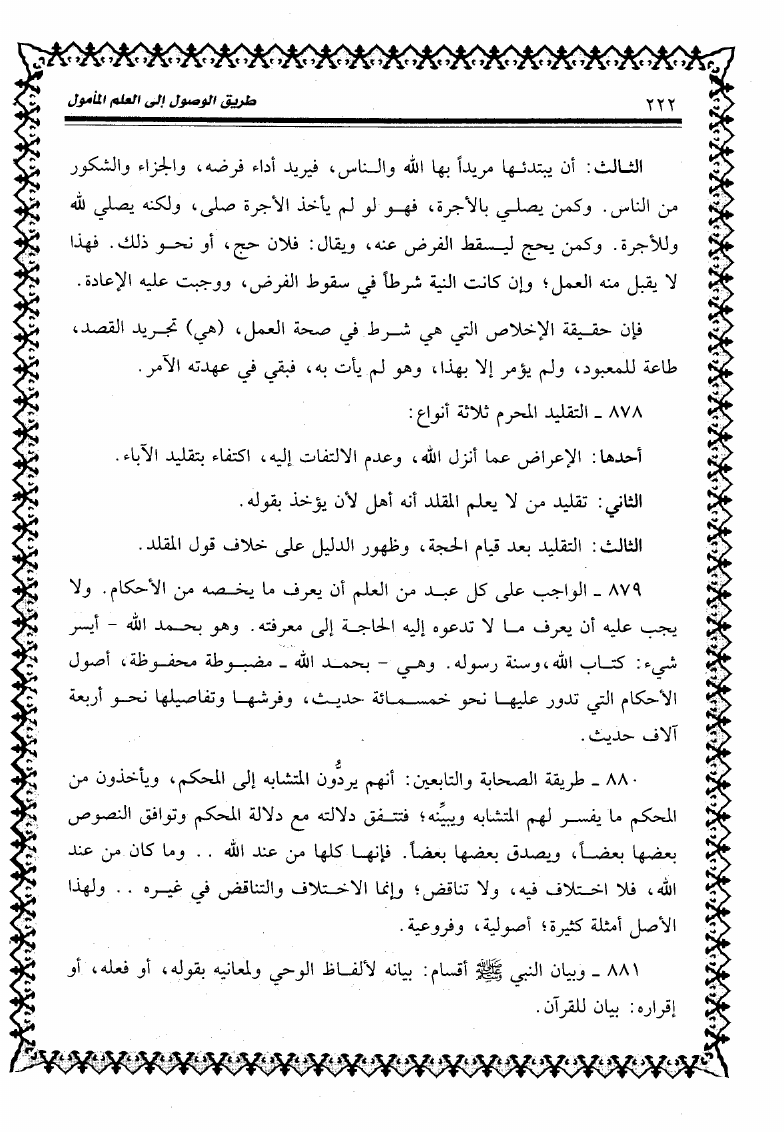 ٢٢٢
طريق الوصول إلى العلم المأمول
الثالث: أن يبتدئها مريداً بها الله والناس، فيريد أداء فرضه، والجزاء والشكور
من الناس. وكمن يصلي بالأجرة، فهو لو لم يأخذ الأجرة صلى، ولكنه يصلي لله
وللأجرة. وكمن يحج ليسقط الفرض عنه، ويقال: فلان حج، أو نحو ذلك. فهذا
لا يقبل منه العمل؛ وإن كانت النية شرطاً في سقوط الفرض، ووجبت عليه الإعادة.
فإن حقيقة الإخلاص التي هي شرط في صحة العمل، (هي) تجريد القصد،
طاعة للمعبود، ولم يؤمر إلا بهذا، وهو لم يأت به، فبقي في عهدته الآمر.
٨٧٨ ـ التقليد المحرم ثلاثة أنواع:
أحدها: الإعراض عما أنزل الله، وعدم الالتفات إليه، اكتفاء بتقليد الآباء.
الثاني: تقليد من لا يعلم المقلد أنه أهل لأن يؤخذ بقوله.
الثالث: التقليد بعد قيام الحجة، وظهور الدليل على خلاف قول المقلد.
٨٧٩ ـ الواجب على كل عبد من العلم أن يعرف ما يخصه من الأحكام. ولا
يجب عليه أن يعرف ما لا تدعوه إليه الحاجة إلى معرفته. وهو بحمد الله - أيسر
شيء: كتاب الله،وسنة رسوله. وهي - بحمد الله ـ مضبوطة محفوظة، أصول
الأحكام التي تدور عليها نحو خمسمائة حديث، وفرشها وتفاصيلها نحو أربعة
آلاف حديث.
٨٨٠ ـ طريقة الصحابة والتابعين: أنهم يردُّون المتشابه إلى المحكم، ويأخذون من
المحكم ما يفسر لهم المتشابه ويبيِّنه؛ فتتفق دلالته مع دلالة المحكم وتوافق النصوص
بعضها بعضاً، ويصدق بعضها بعضاً. فإنها كلها من عند الله .. وما كان من عند
الله، فلا اختلاف فيه، ولا تناقض؛ وإنما الاختلاف والتناقض في غيره .. ولهذا
الأصل أمثلة كثيرة؛ أصولية، وفروعية.
٨٨١ ـ وبيان النبي ﷺ أقسام: بيانه لألفاظ الوحي ولمعانيه بقوله، أو فعله، أو
إقراره: بيان للقرآن.